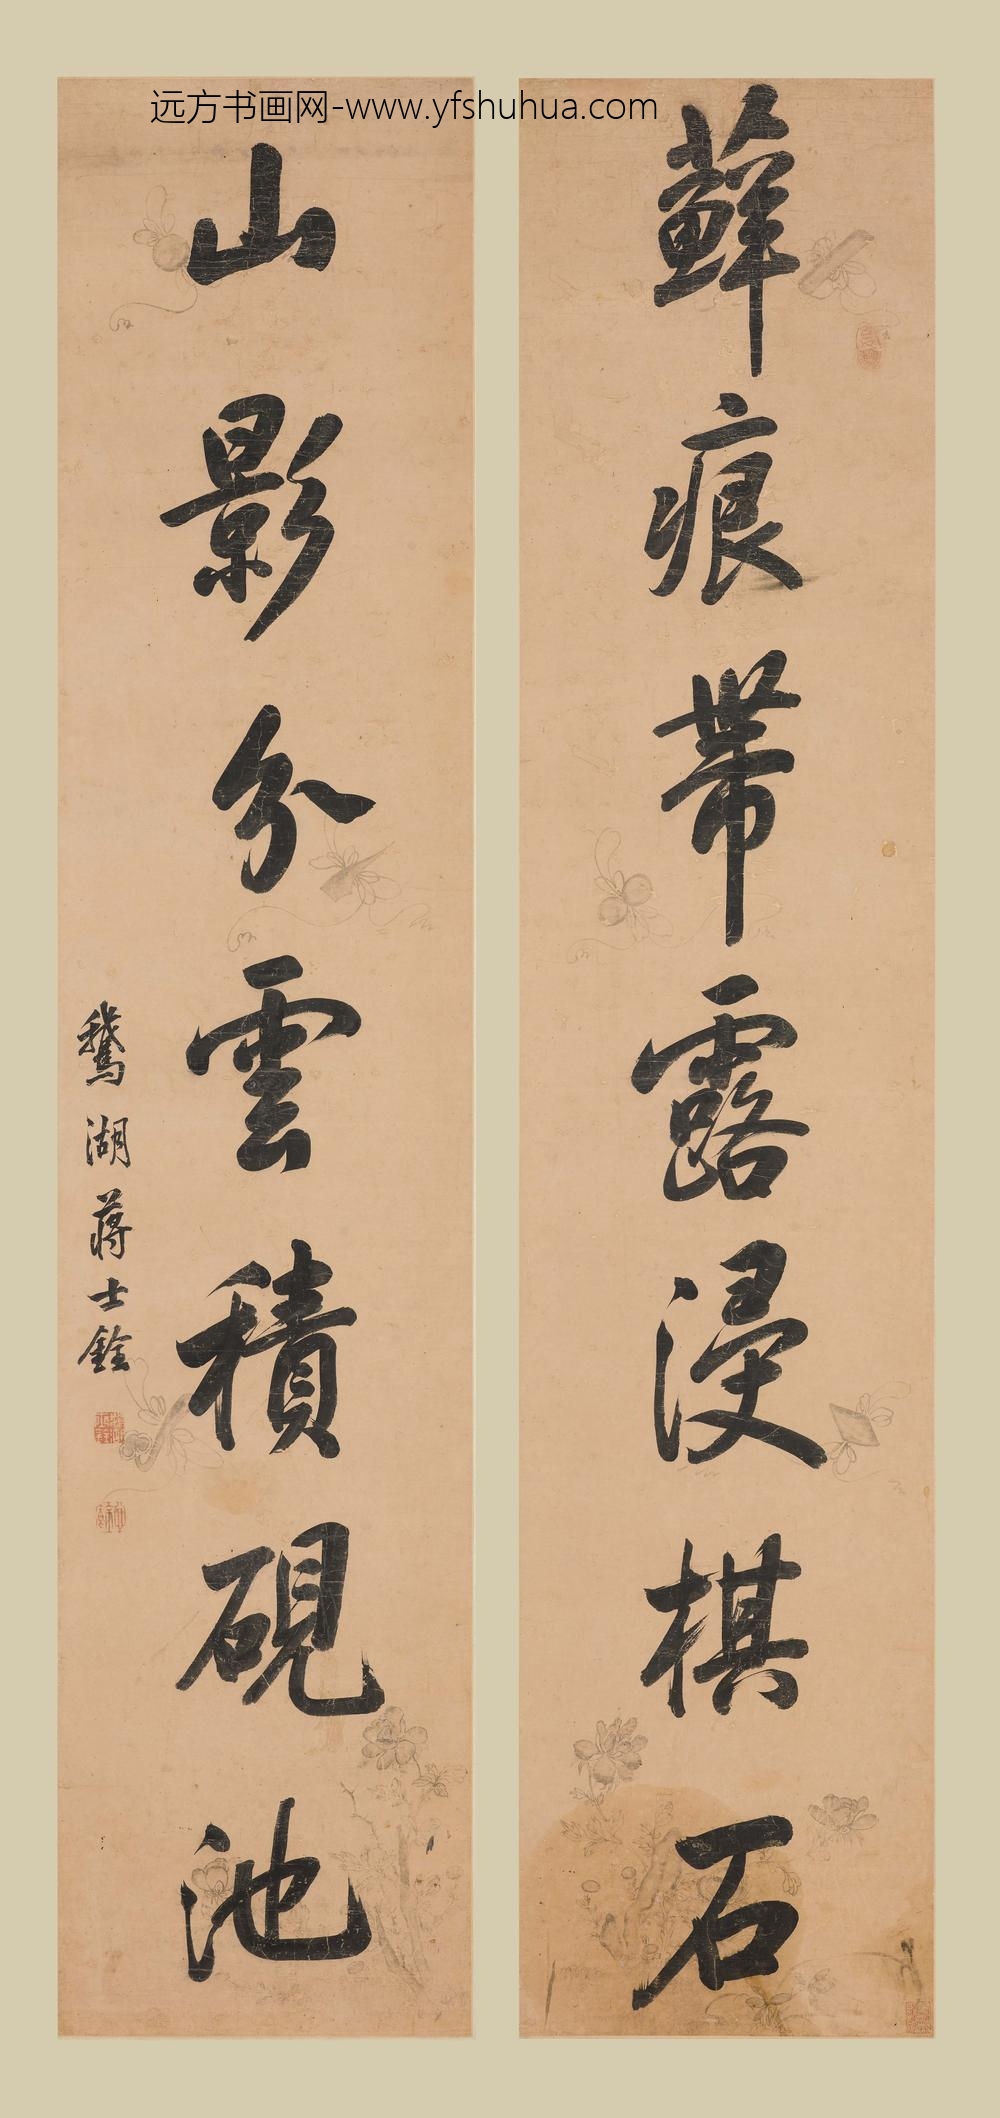 远方书画网-www.yfshuhua.com
蘚痕帶露浸棋石
山影分雲積硯池
鵞湖蔣士銓